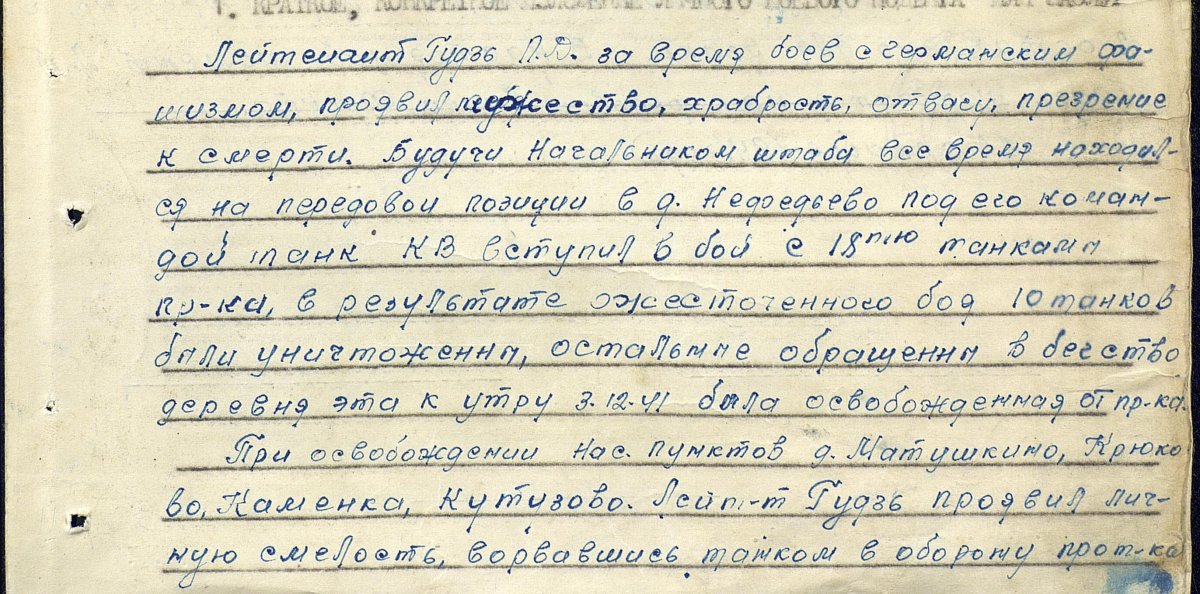 1. КРАТКОЕ, КОНКРЕТНОЕ ИЗЛОЖЕНИЕ ЛИЧНОГО БОЕВОГО ПОДВИГА ИЛИ ЗАСЛУГ
Лейтенант Гудзь П.Д. за время боев с германским фа-
шизмом, проявил мужество, храбрость, отвагу, презрение
к смерти. Будучи Начальником штаба все время находил-
ся на передовой позиции в д. Нефедьево под его коман-
дой танк КВ вступил в бой с 18тью танками
пр-ка, в результате ожесточенного боя 10 танков
были уничтоженны, остальные обращенны в бегство
деревня эта к утру 3.12.41 была освобожденная от пр-ка.
При освобождении нас. пунктов д. Матушкино, Крюко
во, Каменка, Кутузово. Лейт-т Гудзь проявил лич-
ную смелость, ворвавшись танком в оборону прот-ка